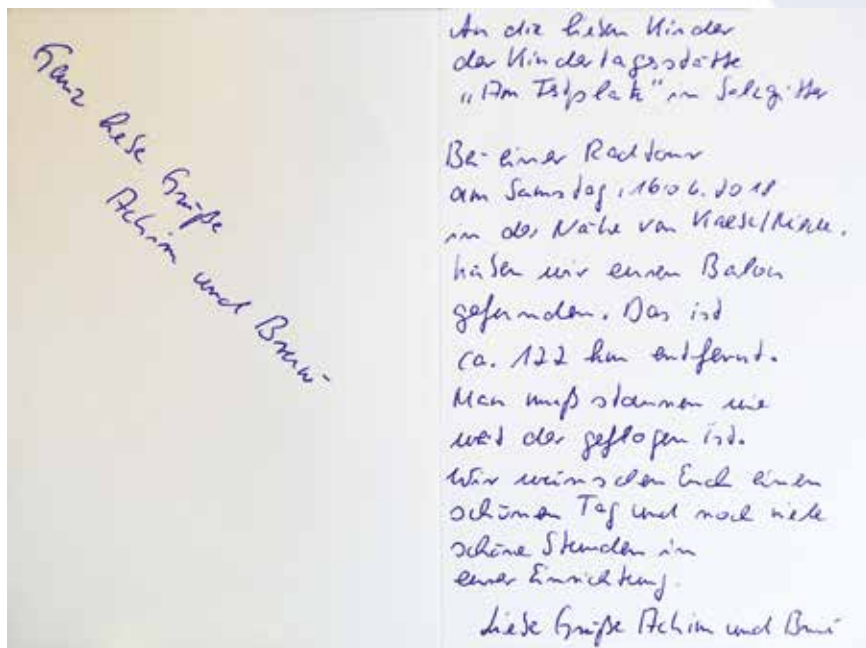 Ganz liebe Grüße
Achim und Bruni
An die lieben Kinder
der Kindertagsstätte
"Am in Salzgitter
Bei einer Radtour
am Samstag, 16.06.2018
in der Nähe von
haben wir einen Balon
gefunden. Das ist
ca. 122 km entfernt.
Man muß staunen wie
weit der geflogen ist.
Wir wünschen Euch einen
schönen Tag und noch viele
schöne Stunden in
eurer Einrichtung.
Liebe Grüße Achim und Bruni